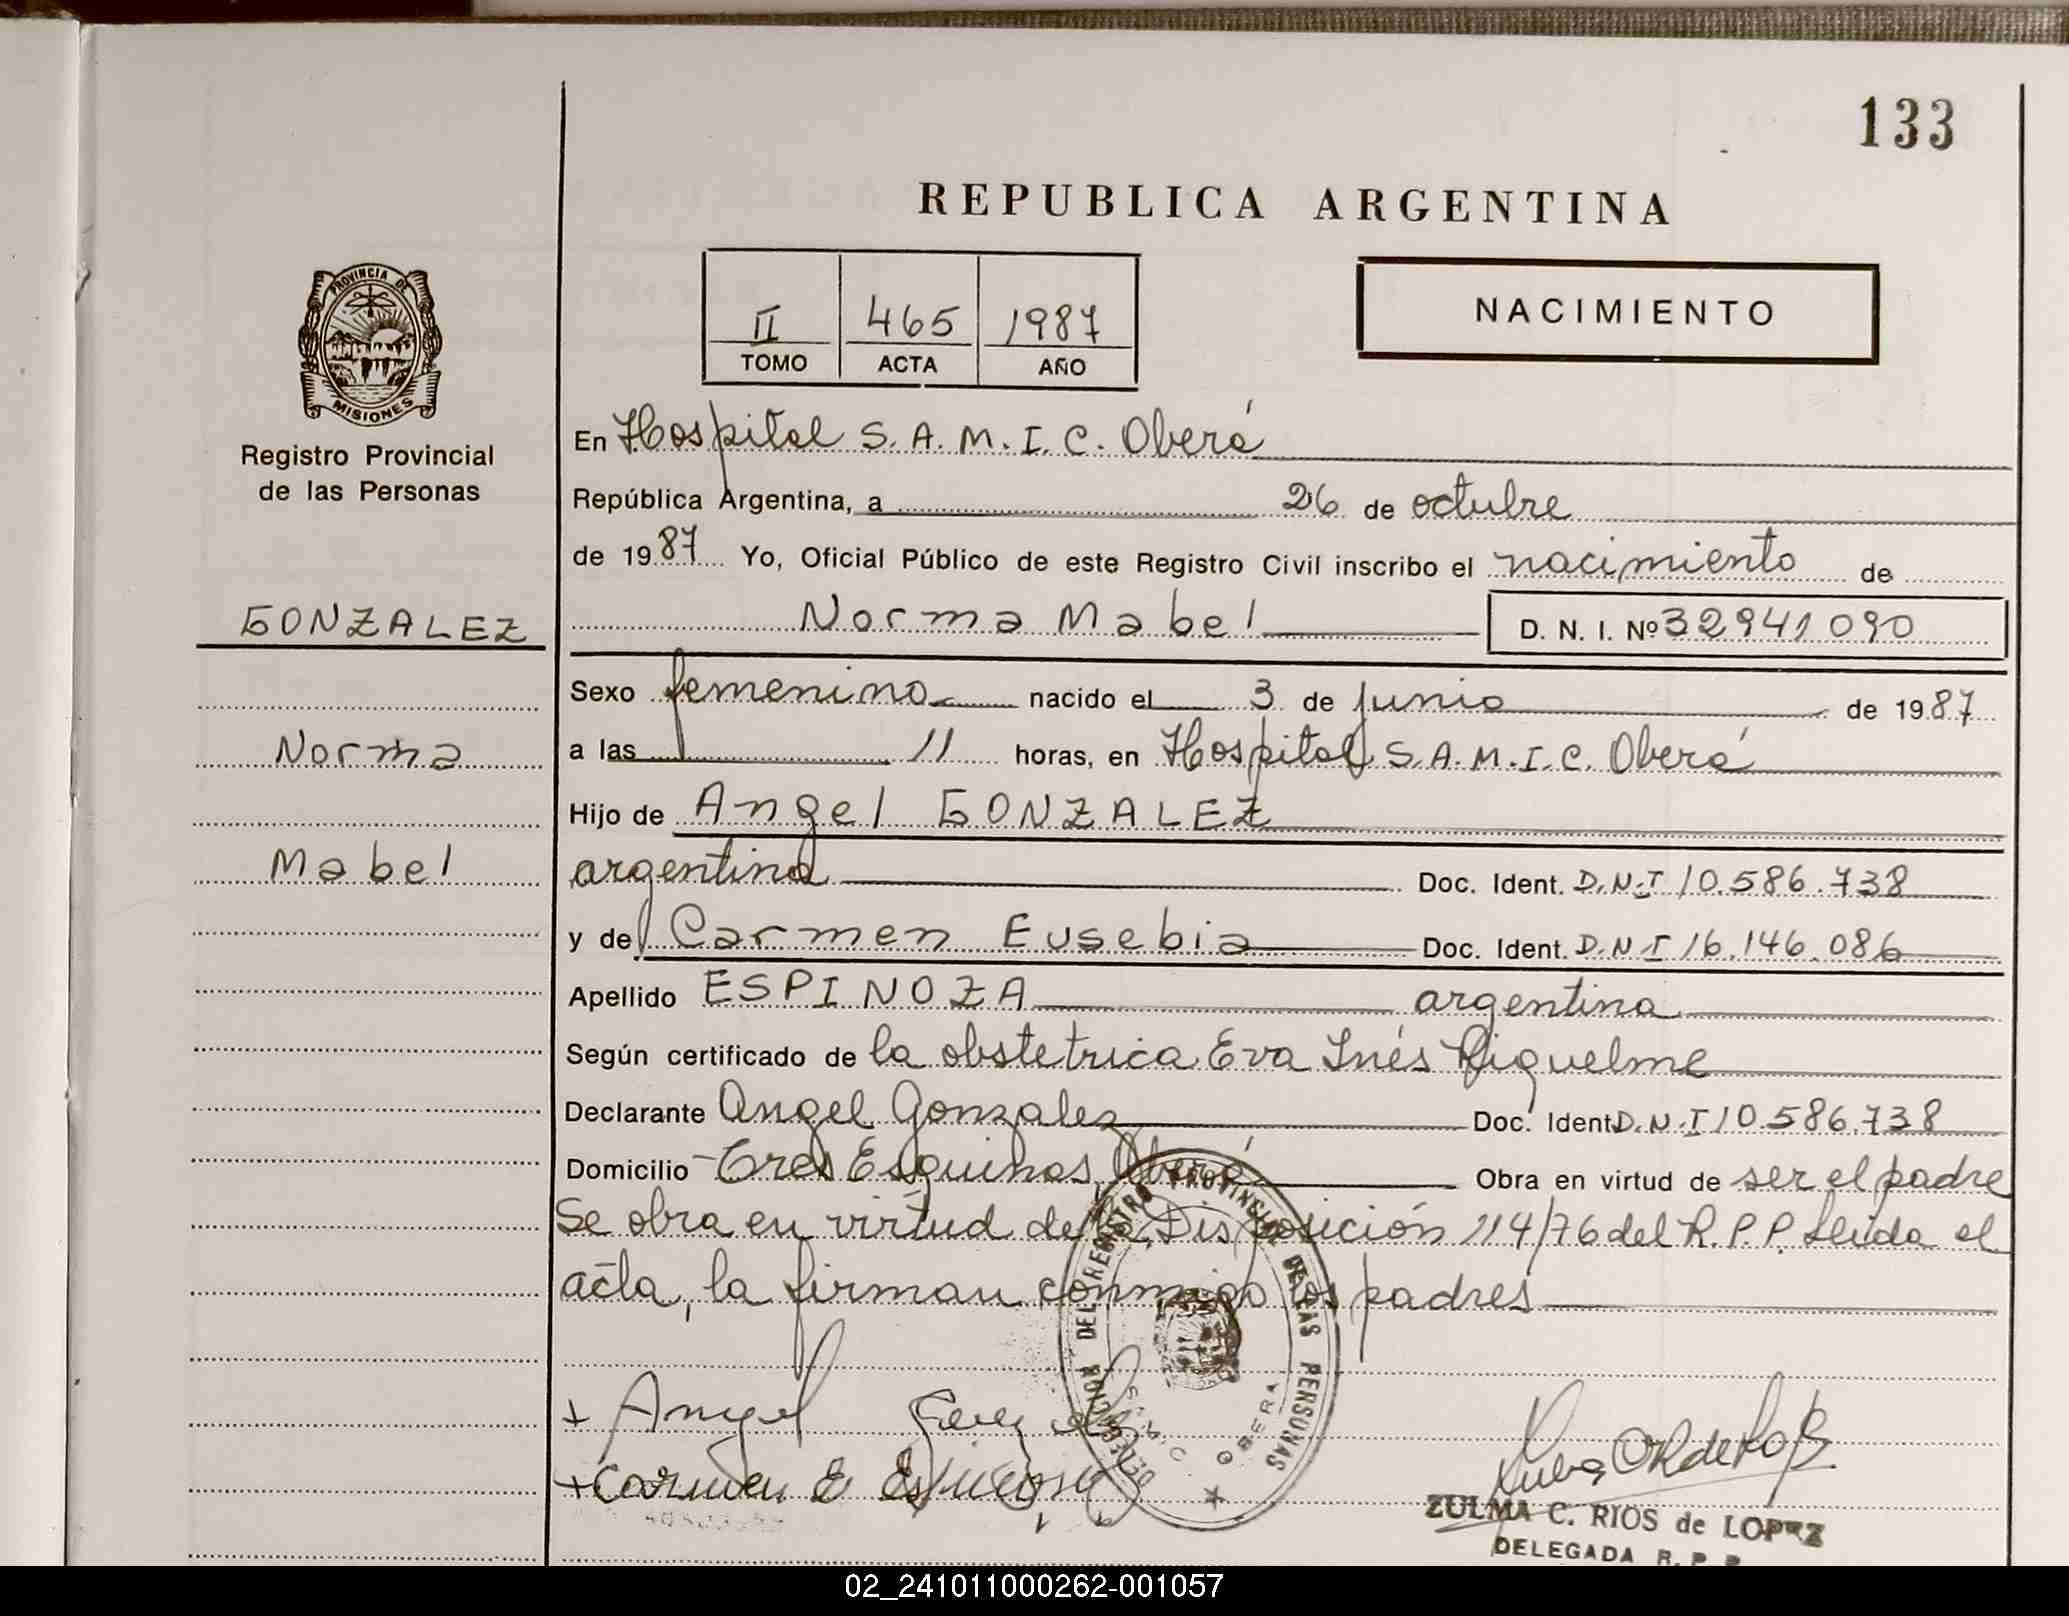 133
REPUBLICA ARGENTINA
II 465 1987
TOMO ACTA AÑO
NACIMIENTO
PROVINCIA DE
MISIONES
Registro Provincial
de las Personas
GONZALEZ
Norma
Mabel
En Hospital S.A.M.I.C. Oberá
República Argentina, a 26 de octubre
de 1987 Yo, Oficial Público de este Registro Civil inscribo el nacimiento de
Norma Mabel D. N. I. Nº 32941090
Sexo femenino nacido el 3 de junio de 1987
a las 11 horas, en Hospital S.A.M.I.C. Oberá
Hijo de Angel GONZALEZ
argentino Doc. Ident. D.N.I 10.586.738
y de Carmen Eusebia Doc. Ident. D.N.I 16.146.086
Apellido ESPINOZA argentina
Según certificado de la obstetrica Eva Inés Riquelme
Declarante Angel Gonzalez Doc. Ident D.N.I 10.586.738
Domicilio Tres Esquinas, Oberá Obra en virtud de ser el padre
Se obra en virtud de la Disposición 114/76 del R.P.P. Leida el
acta, la firman conmigo los padres
DEL REGISTRO PROVINCIAL DE LAS PERSONAS
OBERA
+ Angel
+ Carmen E Espinoza
ZULMA C. RIOS de LOPEZ
DELEGADA R. P. P.
02_241011000262-001057